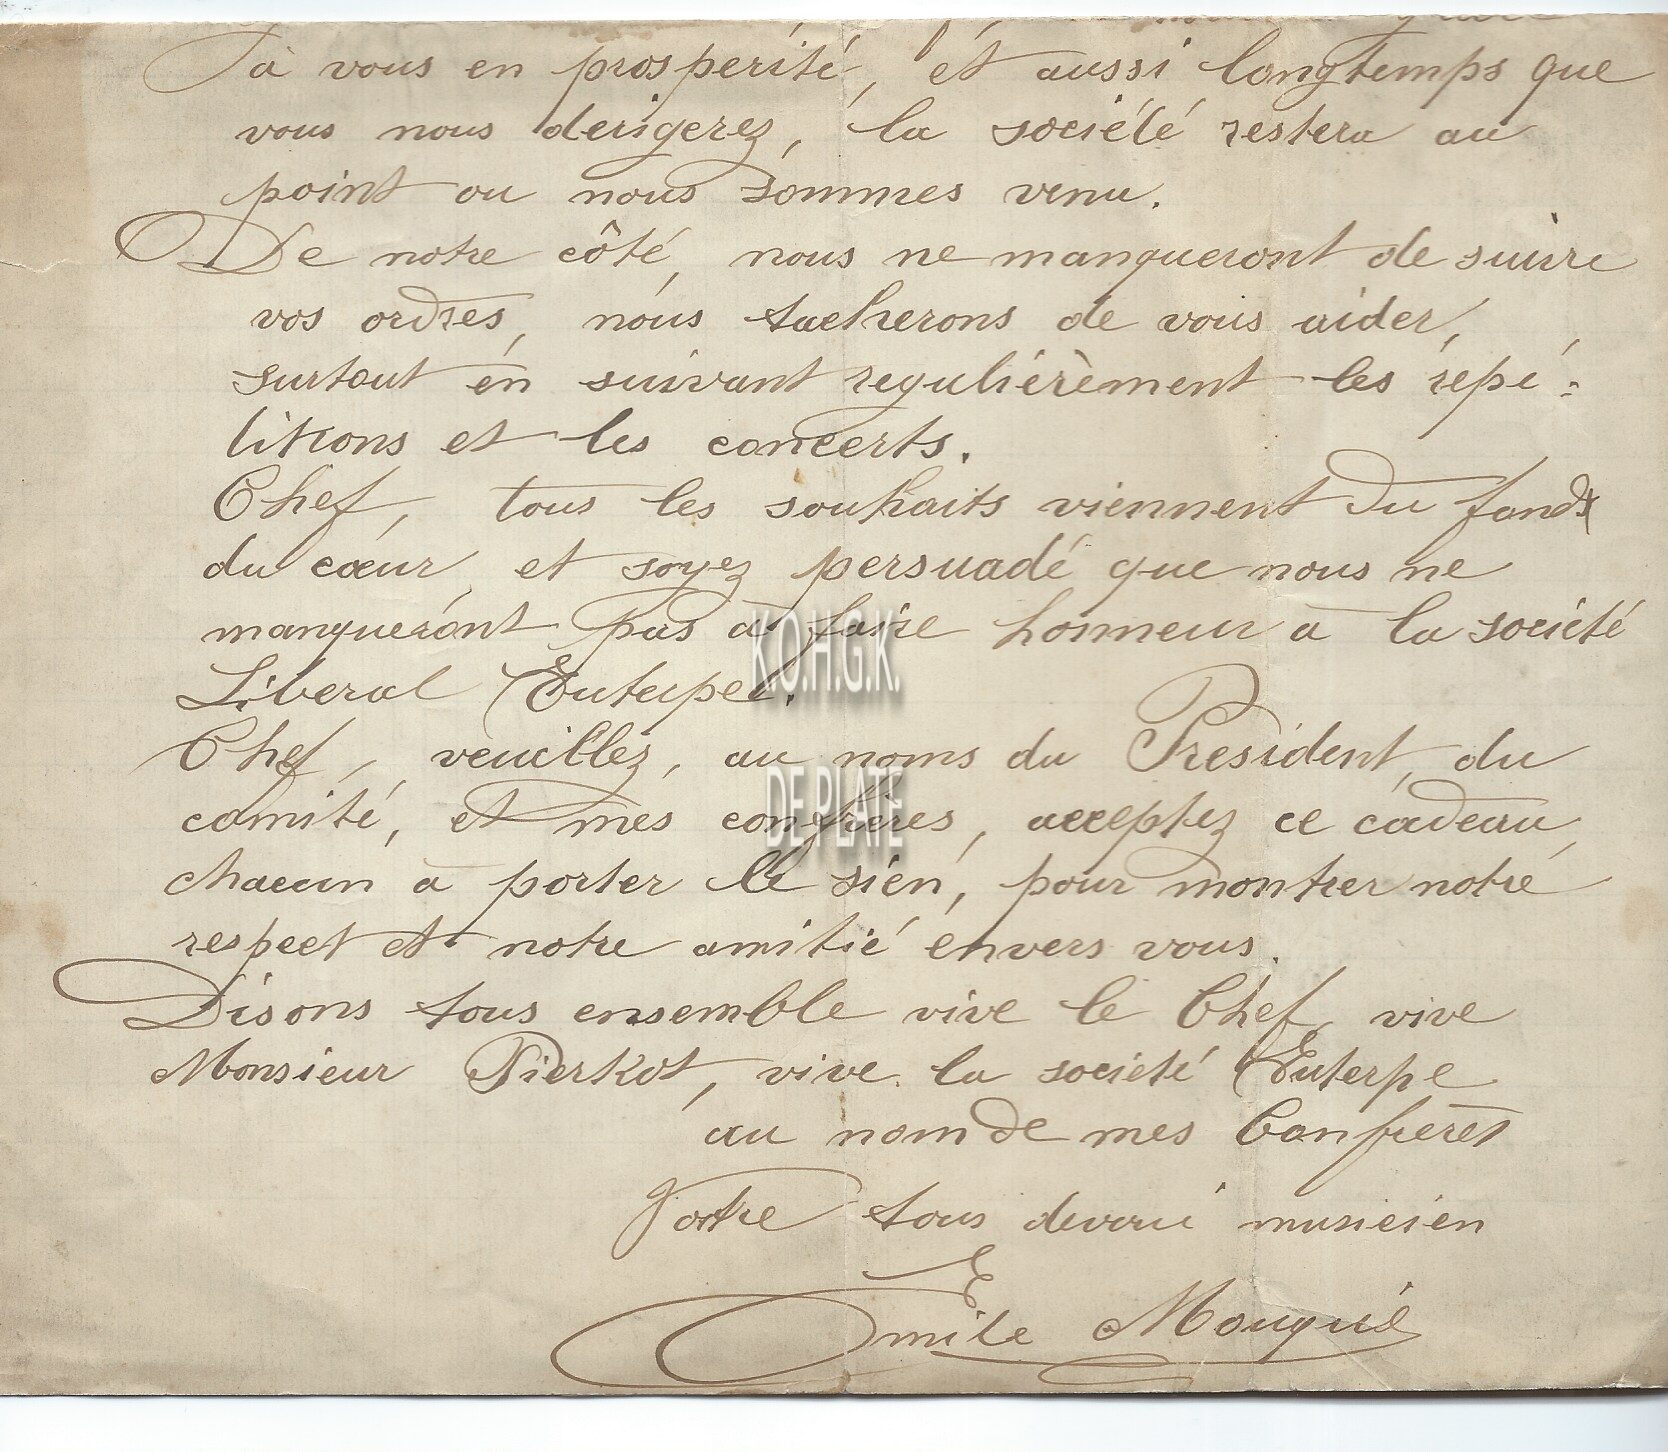 à vous en prosperité, et aussi longtemps que
vous nous derigerez, la société restera au
point ou nous sommes venu.
De notre côté, nous ne manqueront de suivre
vos ordres, nous tacherons de vous aider,
surtout en suivant regulièrèment les répé=
titions et les concerts.
Chef, tous les souhaits viennent du fonds
du cœur, et soyez persuadé que nous ne
manqueront pas a faire honneur a la société
Liberal Euterpe.
Chef, veuillez, au noms du President, du
comité, et mes confrères, acceptez ce cadeau,
chacun a porter le sien, pour montrer notre
respect et notre amitié envers vous.
Disons tous ensemble vive le Chef, vive
Monsieur Pierkot, vive la societé Euterpe
au nom de mes Confrères
Votre tous devoué musicien
Emile
K.O.H.G.K.
DE PLATE